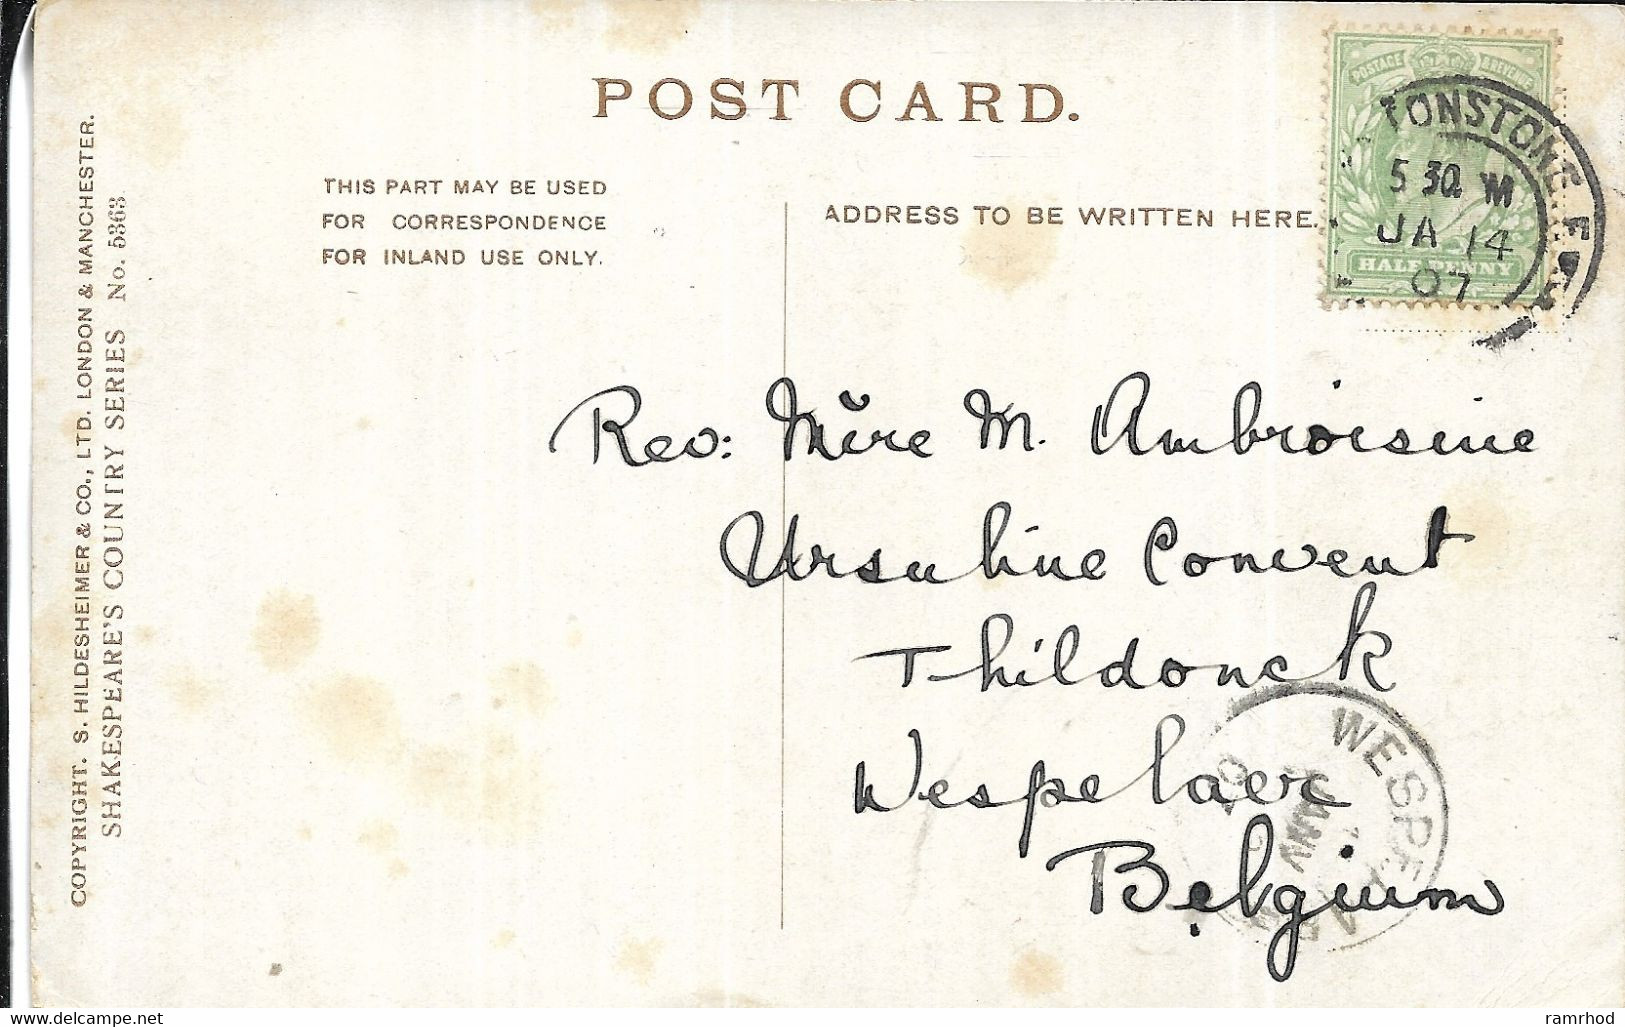 POST CARD.
THIS PART MAY BE USED
FOR CORRESPONDENCE
FOR INLAND USE ONLY.
ADDRESS TO BE WRITTEN HERE.
POSTAGE & REVENUE
HALF PENNY
TONSTONE
5 30 M
JA 14
07
Rev: Mère M. Ambroisine
Ursuline Convent
Thildonck
Wespelaer
Belgium
WESPELAER
COPYRIGHT. S. HILDESHEIMER & CO., LTD. LONDON & MANCHESTER.
SHAKESPEARE'S COUNTRY SERIES No. 5363
delcampe.net
ramrhod